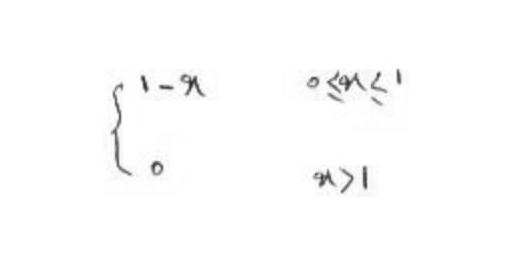 { 1 - x 0 ≤ x ≤ 1
0 x > 1